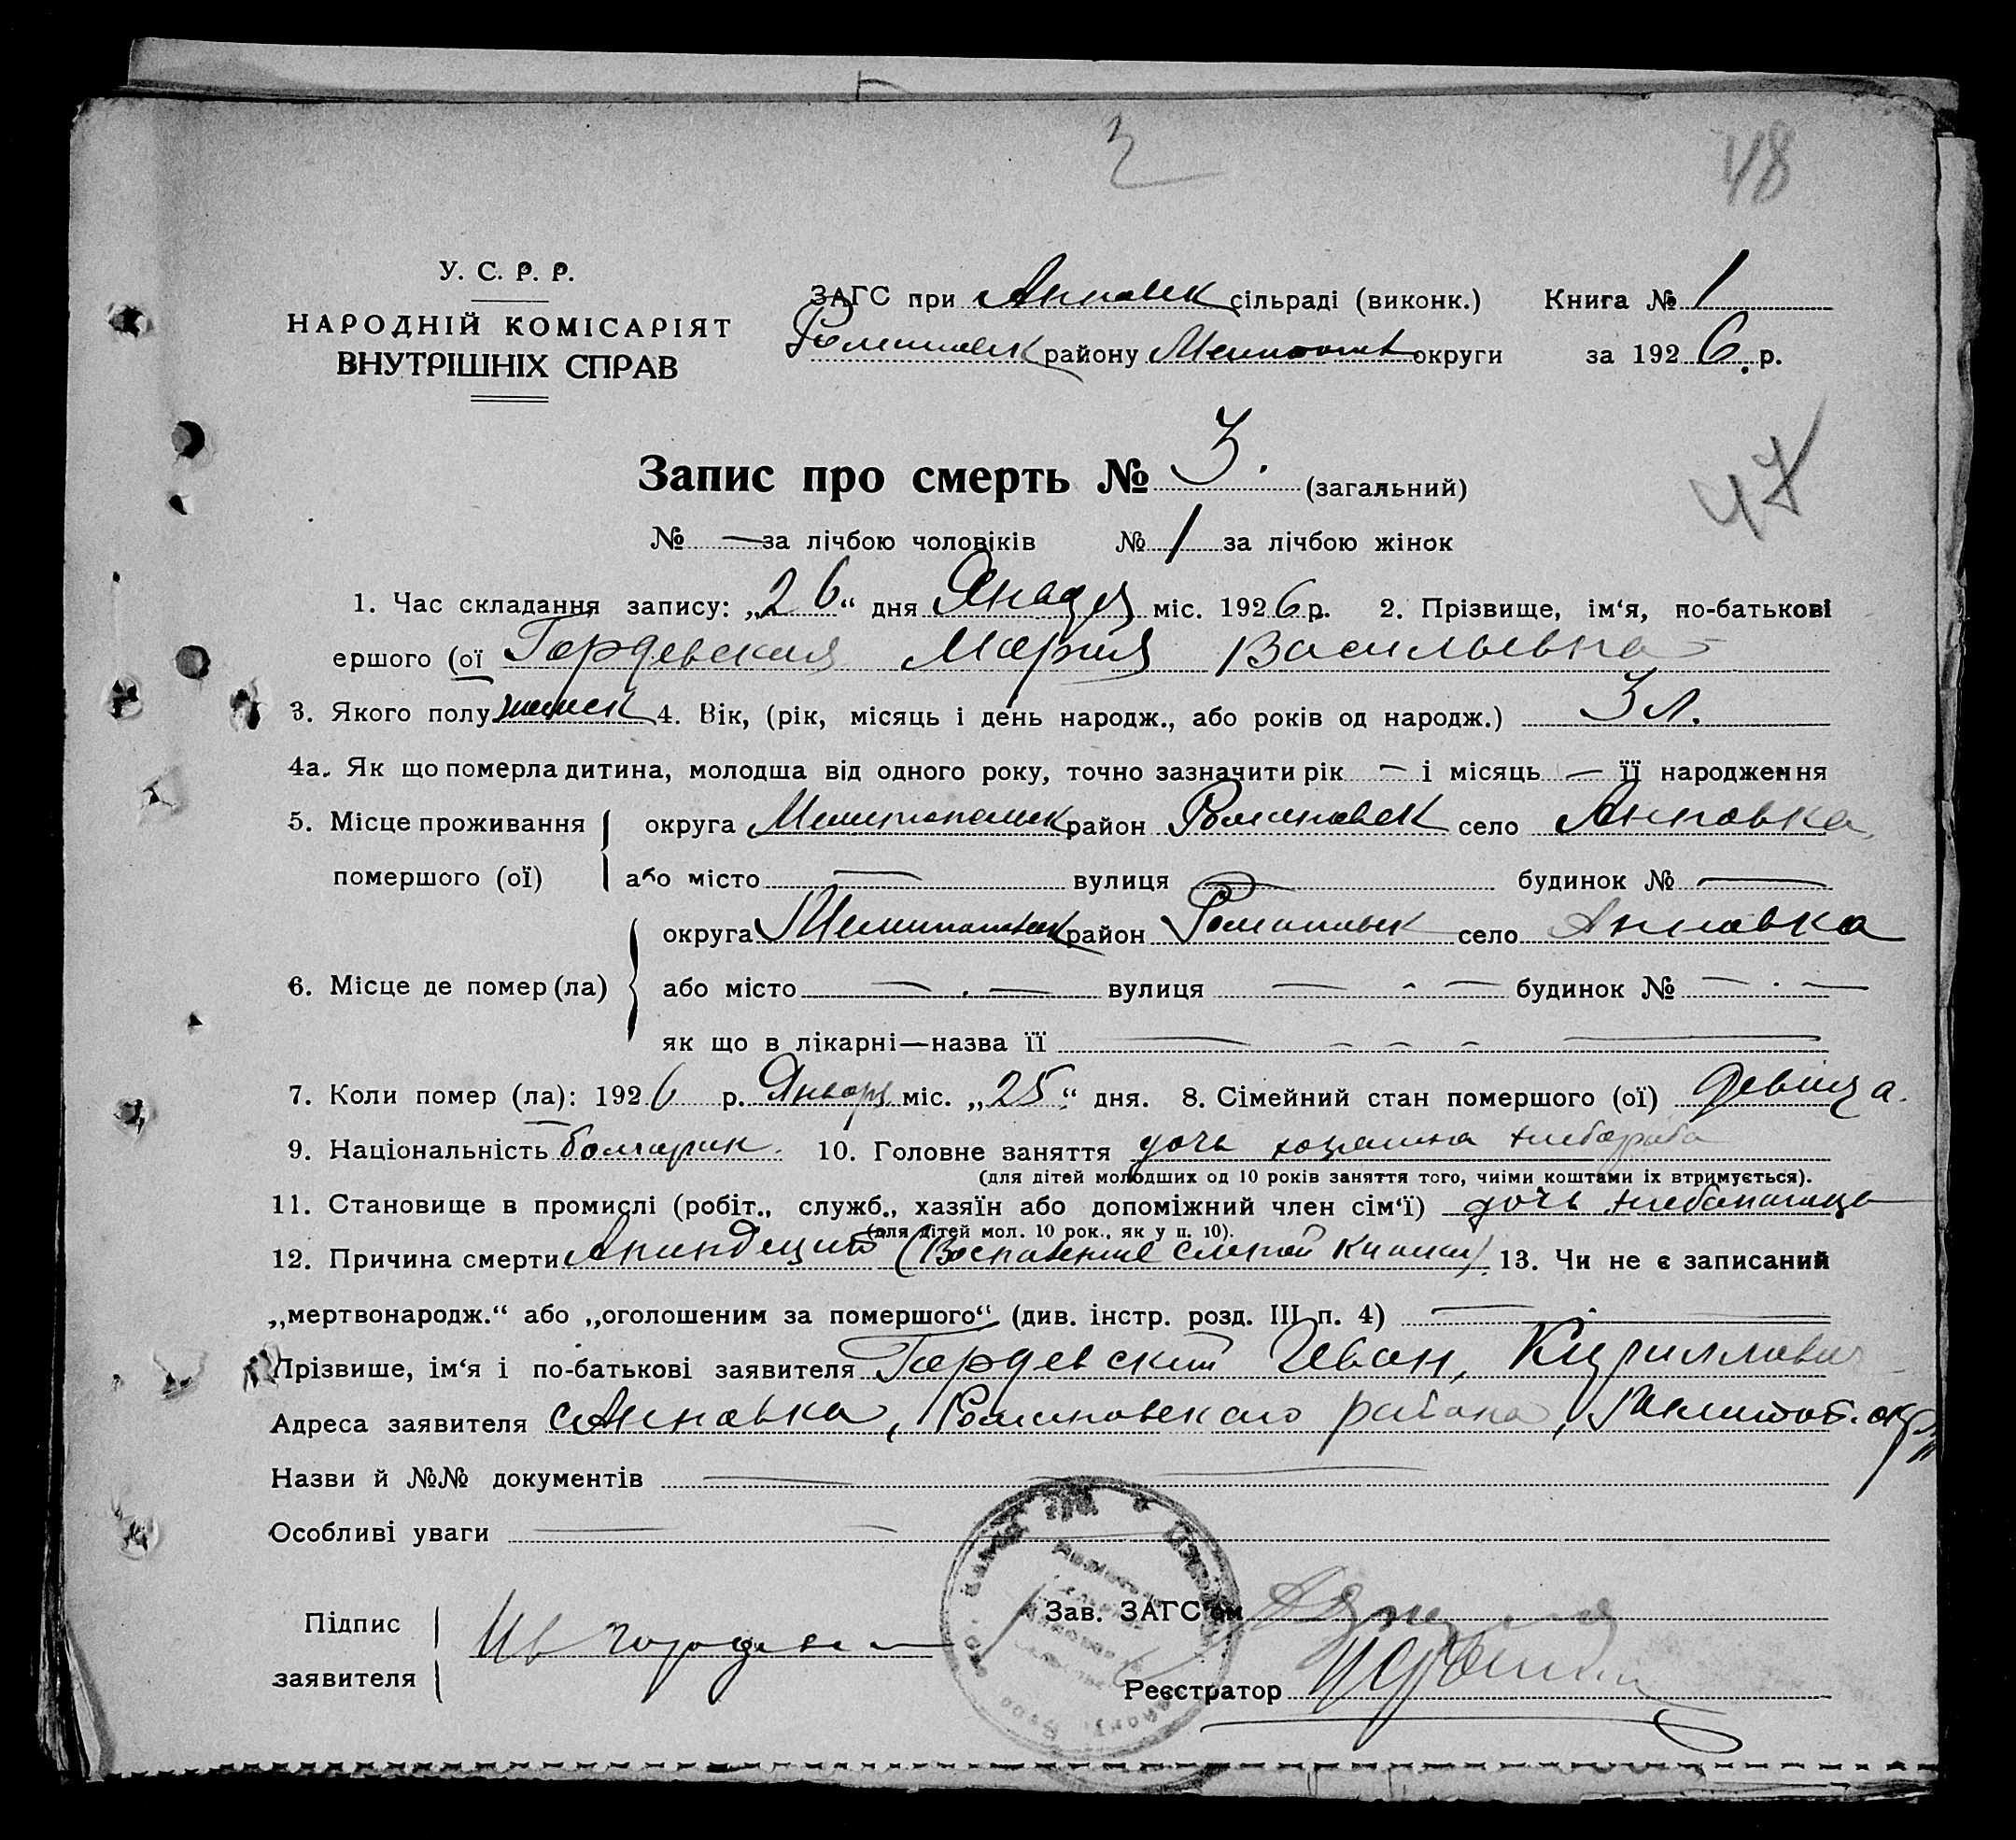 2
48
У. С. Р. Р.
НАРОДНІЙ КОМІСАРІЯТ
ВНУТРІШНІХ СПРАВ
ЗАГС при Анновск сільраді (виконк.) Книга № 1
Романовск району Мелитоп округи за 1926 р.
47
Запис про смерть № 3. (загальний)
№ — за лічбою чоловіків № 1 за лічбою жінок
1. Час складання запису: „26“ дня Января міс. 1926 р. 2. Прізвище, ім‘я, по-батькові
ершого (ої Гордевская Мария Васильевна
3. Якого полу женск 4. Вік, (рік, місяць і день народж., або років од народж.) 3 л.
4а. Як що померла дитина, молодша від одного року, точно зазначити рік — і місяць — її народження
5. Місце проживання округа Мелитопольск район Романовск село Анновка
помершого (ої) або місто — вулиця — будинок № —
округа Мелитопольск район Романовск село Анновка
6. Місце де помер (ла) або місто — . — вулиця — - — будинок № — . —
як що в лікарні—назва її — - - - —
7. Коли помер (ла): 1926 р. Январь міс. „25“ дня. 8. Сімейний стан помершого (ої) девица.
9. Національність болгарин. 10. Головне заняття дочь хозяина хлебороба
(для дітей молодших од 10 років заняття того, чиїми коштами їх втримується).
11. Становище в промислі (робіт., служб., хазяїн або допоміжний член сім‘ї) дочь
(для дітей мол. 10 рок., як у п. 10).
12. Причина смерти Апиндецит (Воспаление слепой кишки) 13. Чи не є записаний
„мертвонародж.“ або „оголошеним за помершого“ (див. інстр. розд. III п. 4) —
Прізвише, ім‘я і по-батькові заявителя Гордевский Иван, Кириллович
Адреса заявителя с Анновка, Романовского района, Мелитоп. окр
Назви й №№ документів —
Особливі уваги —
Підпис
заявителя
Зав. ЗАГС‘ом
Реєстратор